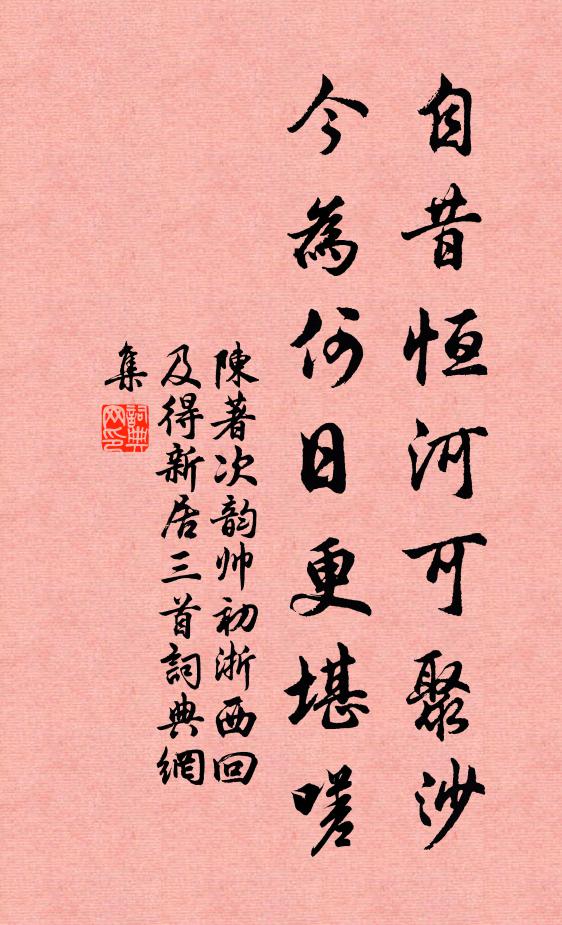 自昔恒河可聚沙
今為何日更堪嗟
陳著次韵帅初浙西回
及得新居三首詞典網
集
詞典
网印